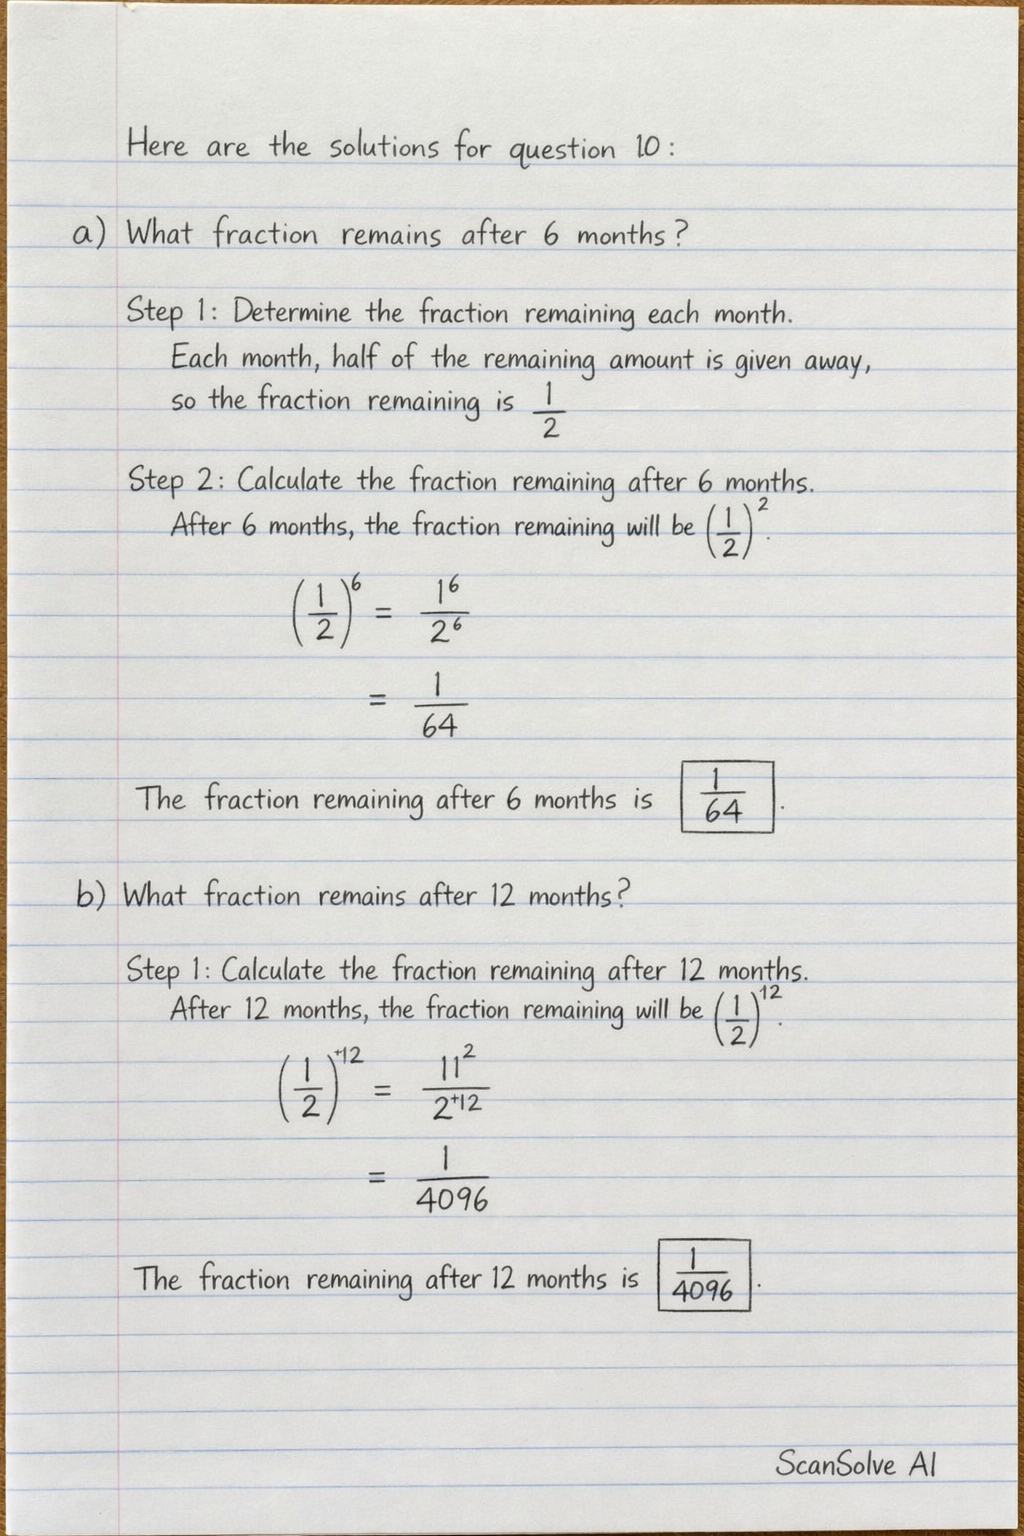 Here are the solutions for question 10:
a) What fraction remains after 6 months?
Step 1: Determine the fraction remaining each month.
Each month, half of the remaining amount is given away,
so the fraction remaining is 1/2
Step 2: Calculate the fraction remaining after 6 months.
After 6 months, the fraction remaining will be (1/2)^2.
(1/2)^6 = 1^6/2^6
= 1/64
The fraction remaining after 6 months is 1/64.
b) What fraction remains after 12 months?
Step 1: Calculate the fraction remaining after 12 months.
After 12 months, the fraction remaining will be (1/2)^12.
(1/2)^+12 = 11^2/2^+12
= 1/4096
The fraction remaining after 12 months is 1/4096.
ScanSolve AI